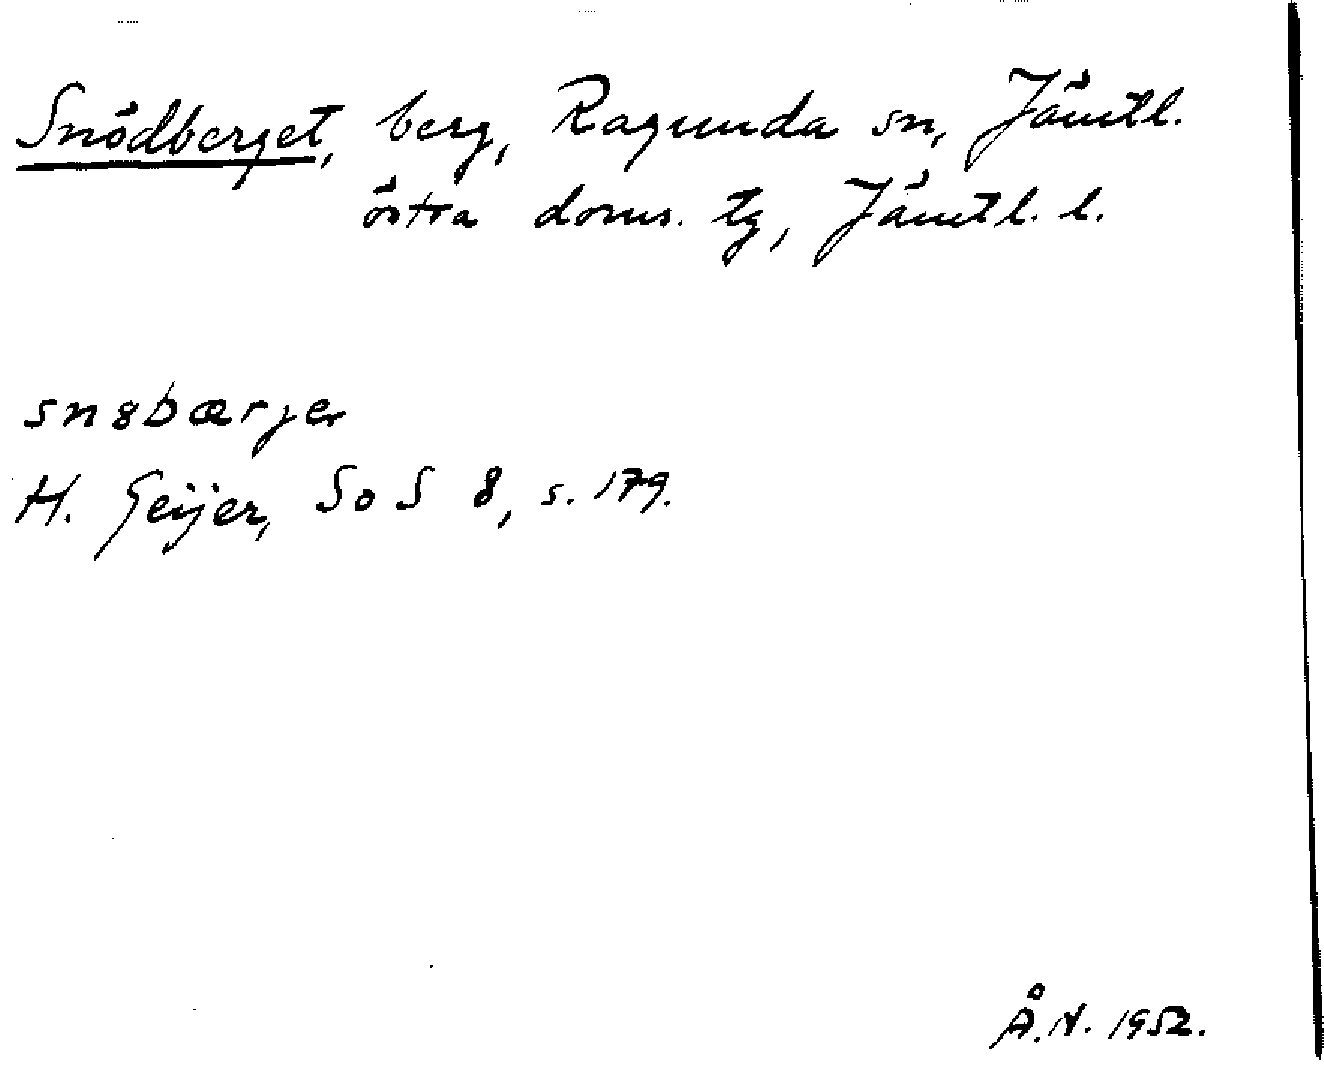 Snödberget, berg, Ragunda sn, Jämtl.
östra doms. tg, Jämtl. l.
snȣbærjer
H. Geijer, SoS 8, s. 179.
Å.N. 1952.